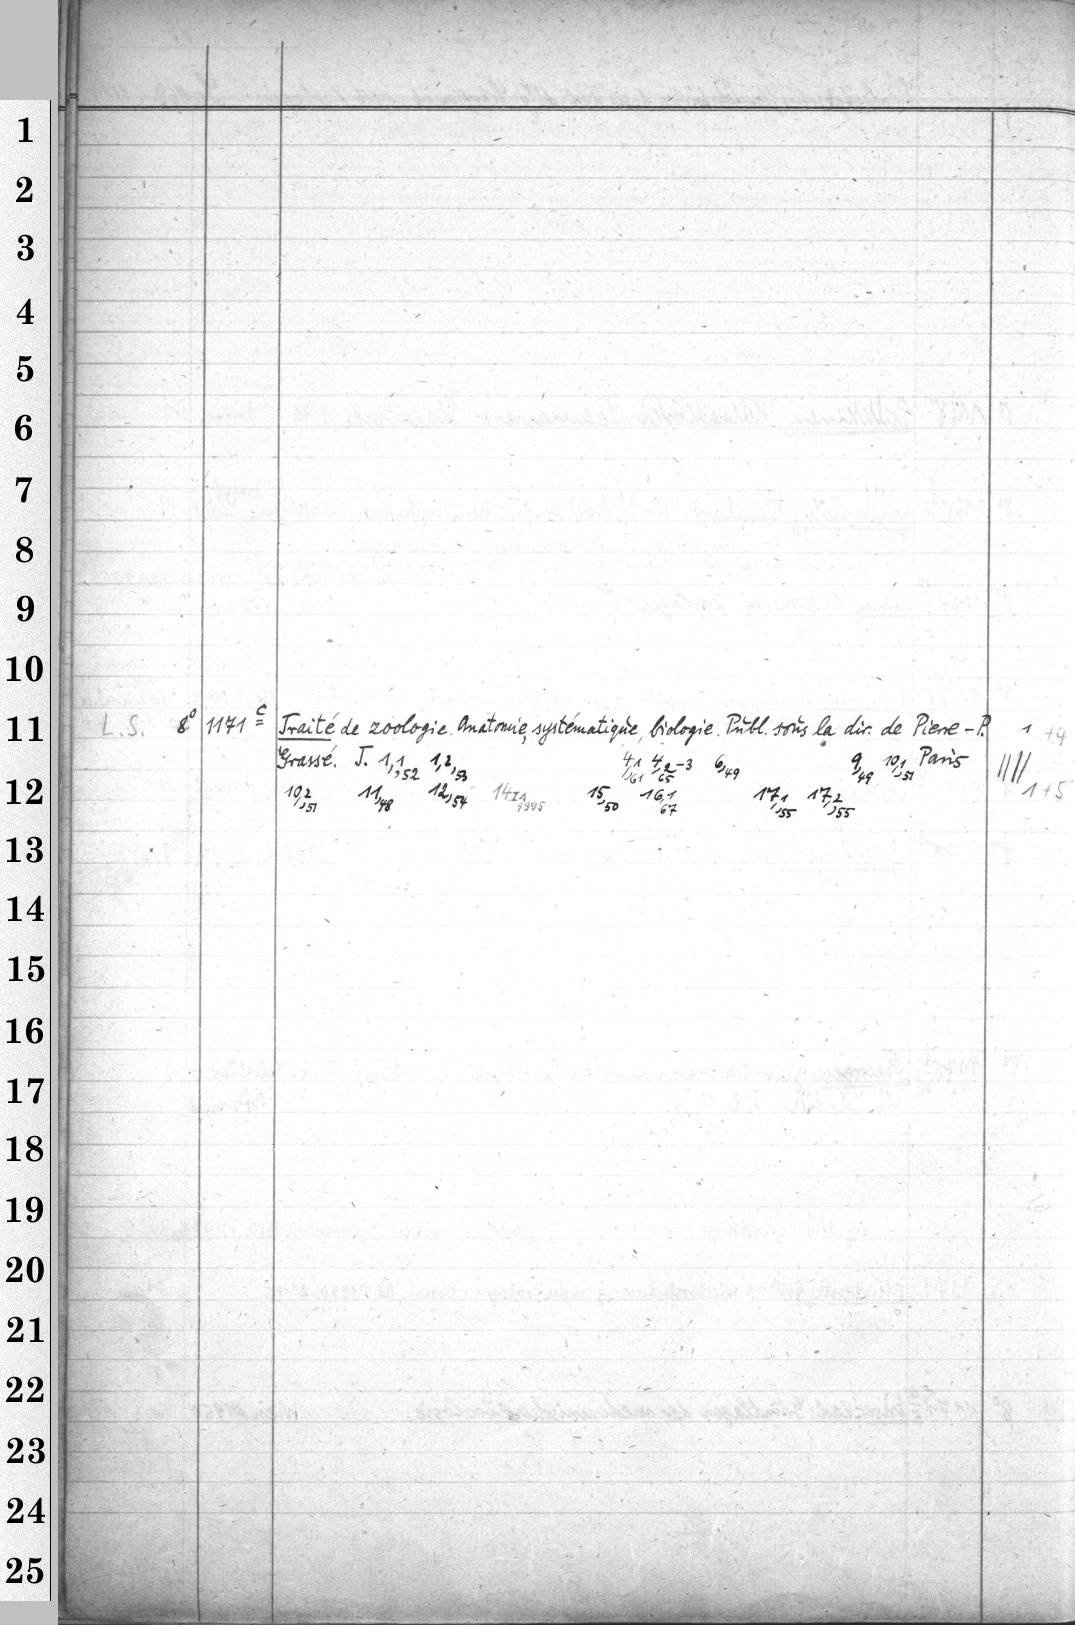 1
2
3
4
5
6
7
8
9
10
11
L.S. 8° 1171 c Traité de zoologie. Anatomie, systématique, biologie. Publ. sous la dir. de Pierre-P. 1 +4
Grassé. T. 1,1,52 1,2,53 4,1,61 4,2-3,65 6,49 9,49 10,1,51 Paris
12
10,2,51 11,48 12,54 15,50 16,1,67 17,1,55 17,2,55 1+5
13
14
15
16
17
18
19
20
21
22
23
24
25